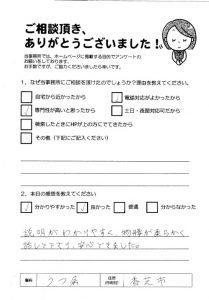 ご相談頂き、
ありがとうございました！
当事務所では、ホームページに掲載する目的でアンケートの
お願いをしております。
お手数ですが、ご協力くださいましたら幸いです。
1、なぜ当事務所にご相談を頂けたのでしょうか？理由を教えてください。
自宅から近かったから
電話対応がよかったから
専門性が高いと思ったから
土日・夜間対応可だから
検索したときにHPが上の方にでてきたから
その他（下記にご記入ください）
2、本日の感想を教えてください。
分かりやすかった
良かった
普通
分からなかった
説明がわかりやすく、物腰が柔らかく
話して下さり、安心できました。
傷病
うつ病
住所
(市町村)
香芝市